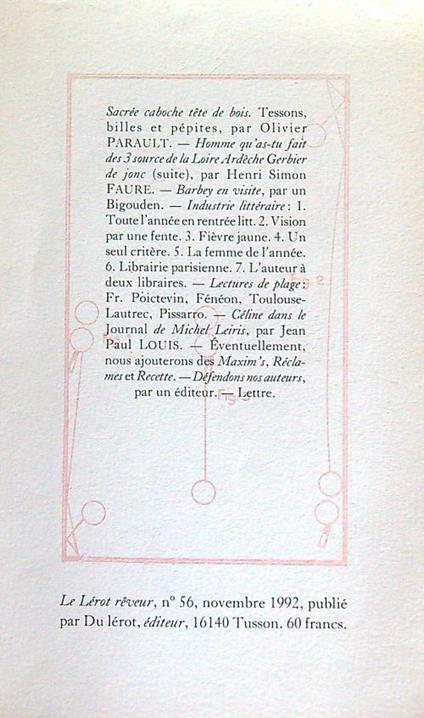 Sacrée caboche tête de bois. Tessons,
billes et pépites, par Olivier
PARAULT. — Homme qu'as-tu fait
des 3 source de la Loire Ardèche Gerbier
de jonc (suite), par Henri Simon
FAURE. — Barbey en visite, par un
Bigouden. — Industrie littéraire : 1.
Toute l'année en rentrée litt. 2. Vision
par une fente. 3. Fièvre jaune. 4. Un
seul critère. 5. La femme de l'année.
6. Librairie parisienne. 7. L'auteur à
deux libraires. — Lectures de plage :
Fr. Poictevin, Fénéon, Toulouse-
Lautrec, Pissarro. — Céline dans le
Journal de Michel Leiris, par Jean
Paul LOUIS. — Éventuellement,
nous ajouterons des Maxim's, Récla-
mes et Recette. — Défendons nos auteurs,
par un éditeur. — Lettre.
Le Lérot rêveur, n° 56, novembre 1992, publié
par Du lérot, éditeur, 16140 Tusson. 60 francs.